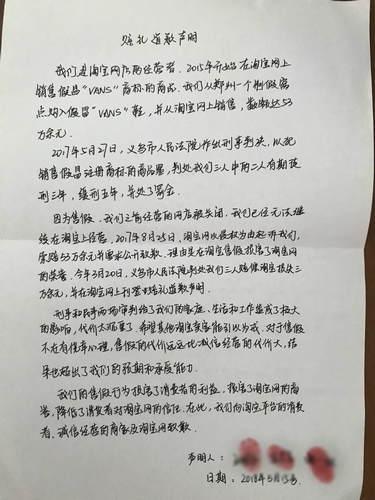 赔礼道歉声明
我们是淘宝网店的经营者。2015年开始在淘宝网上
销售假冒"VANS"商标的商品。我们从郑州一个制假窝
点购入假冒"VANS"鞋,并从淘宝网上销售,数额达53
万余元。
2017年5月27日,义乌市人民法院作出刑事判决,以犯
销售假冒注册商标的商品罪,判处我们三人中的二人有期徒
刑三年,缓刑五年,并处了罚金。
因为售假,我们之前经营的网店被关闭,我们已经无法继
续在淘宝上经营。2017年8月25日,淘宝网以侵权为由起诉我们,
索赔53万余元并要求公开致歉,理由是在淘宝售假损害了淘宝网
的荣誉。今年3月20日,义乌市人民法院判处我们三人赔偿淘宝损失三
万余元,并在淘宝网上刊登赔礼道歉声明。
刑事和民事两场审判给了我们的家庭、生活和工作造成了极大
的影响,代价太沉重了。希望其他淘宝卖家能引以为戒,对于售假
不在有侥幸心理,售假的代价远远比诚信经营的代价大,结
果也超出了我们的预期和承受能力。
我们的售假行为损害了消费者的利益,损害了淘宝网的商
誉,降低了消费者对淘宝网的信任。在此,我们向淘宝平台的消费
者、诚信经营的商家及淘宝网致歉。
声明人:
日期:2018年5月15号.